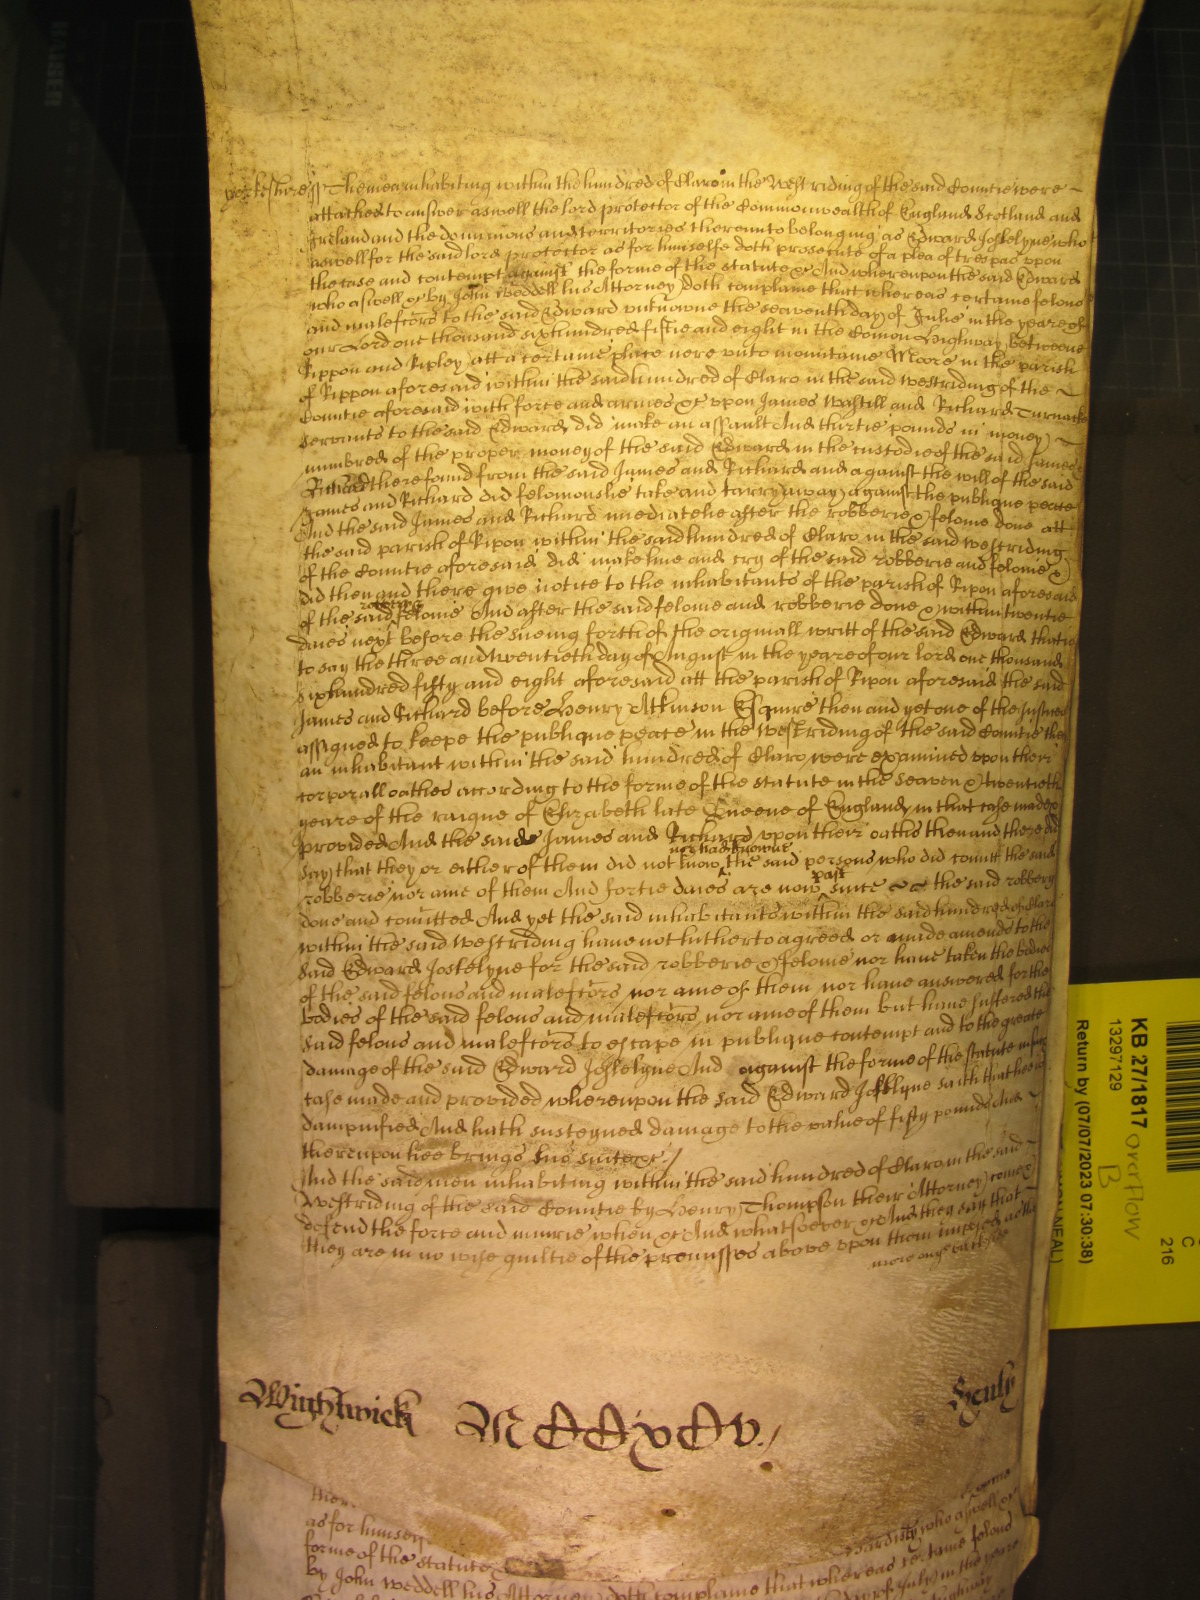 yorkeshire ss The men inhabiting within the hundred of Claro in the West riding of the said Countie were
attached to answer aswell the lord protector of the Commonwealth of England Scotland and
Ireland and the dominions and territories thereunto belonging as Edward Joskelyne who
aswell for the said lord protector as for himselfe doth prosecute of a plea of trespas upon
the case and contempt against the forme of the statute &c And whereupon the said Edward
who aswell &c by John Weddell his Attorney doth complaine that whereas certaine felons
and malefctors to the said Edward unknowne the seaventh day of Julie in the yeare of
our Lord one thousand six hundred fiftie and eight in the Comon Highway betweene
Rippon and Ripley att a certaine place nere unto mountaine Moore in the parish
of Rippon aforesaid within the said hundred of Claro in the said westriding of the
Countie aforesaid with force and armes &c upon James Wastill and Richard Turnacke
servants to the said Edward did make an assault And thirtie pounds in money
numbred of the proper money of the said Edward in the custodie of the said James &
Richard there found from the said James and Richard and against the will of the said
James and Richard did feloniouslie take and carry away against the publique peace
And the said James and Richard imediatelie after the robberie & felonie done att
the said parish of Ripon within the said hundred of Claro in the said westriding
of the Countie aforesaid did make hue and cry of the said robberie and felonie &
did then and there give notice to the inhabitants of the parish of Ripon aforesaid
of the said robberie & felonie And after the said felonie and robberie done & within twentie
daies next before the sueing forth of the originall writt of the said Edward that is
to say the three and twentieth day of August in the yeare of our lord one thousand
six hundred fifty and eight aforesaid att the parish of Ripon aforesaid the said
James and Richard before Henry Atkinson Esquire then and yet one of the Justices
assigned to keepe the publique peace in the westriding of the said Countie then
an inhabitant within the said hundred of Claro were examined upon their
corporall oathes according to the forme of the statute in the seaven & twentieth
yeare of the raigne of Elizabeth late Queene of England in that case made &
provided And the said James and Richard upon their oaths then and there did
say that they or either of them did not know nor had knowne the said persons who did comitt the said
robberie nor anie of them And fortie daies are now past since the said robbery
done and comitted And yet the said inhabitants within the said hundred of Claro
within the said westriding have not hitherto agreed or made amends to the
said Edward Joskelyne for the said robberie & felonie nor have taken the bodies
of the said felons and malefctors nor anie of them nor have answered for the
bodies of the said felons and malefctors nor anie of them but have suffered the
said felons and malefctors to escape in publique contempt and to the greate
damage of the said Edward Joskelyne And against the forme of the statute in such
case made and provided whereupon the said Edward Joskelyne saith that hee is
dampnified And hath susteyned damage to the value of fifty pounds And
thereupon hee brings his suite &c /
And the said men inhabiting within the said hundred of Claro in the said
Westriding of the said Countie by Henry Thompson their Attorney come &
defend the force and iniurie when &c And whatsoever &c And they say that
they are in no wise guiltie of the premisses above upon them imposed as the
more ouge
Wightwick MCCxCv. /
as for himself
who aswell &c
forme of the statute
by John Weddell his Attorney doth complaine that whereas certaine felons
July in the yeare
highway
KB 27/1817 overflow
B
13297129
Return by (07/07/2023 07:30:38)
C
216
NEAL)